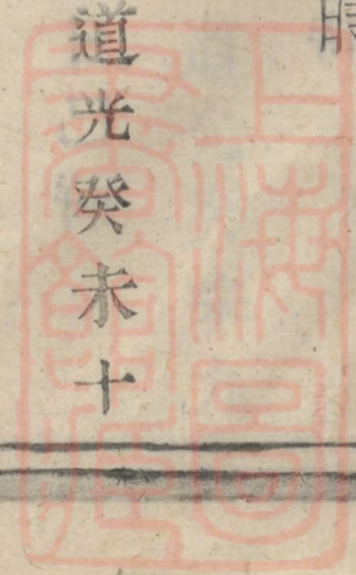 時
道光癸未十
上海圖書館藏